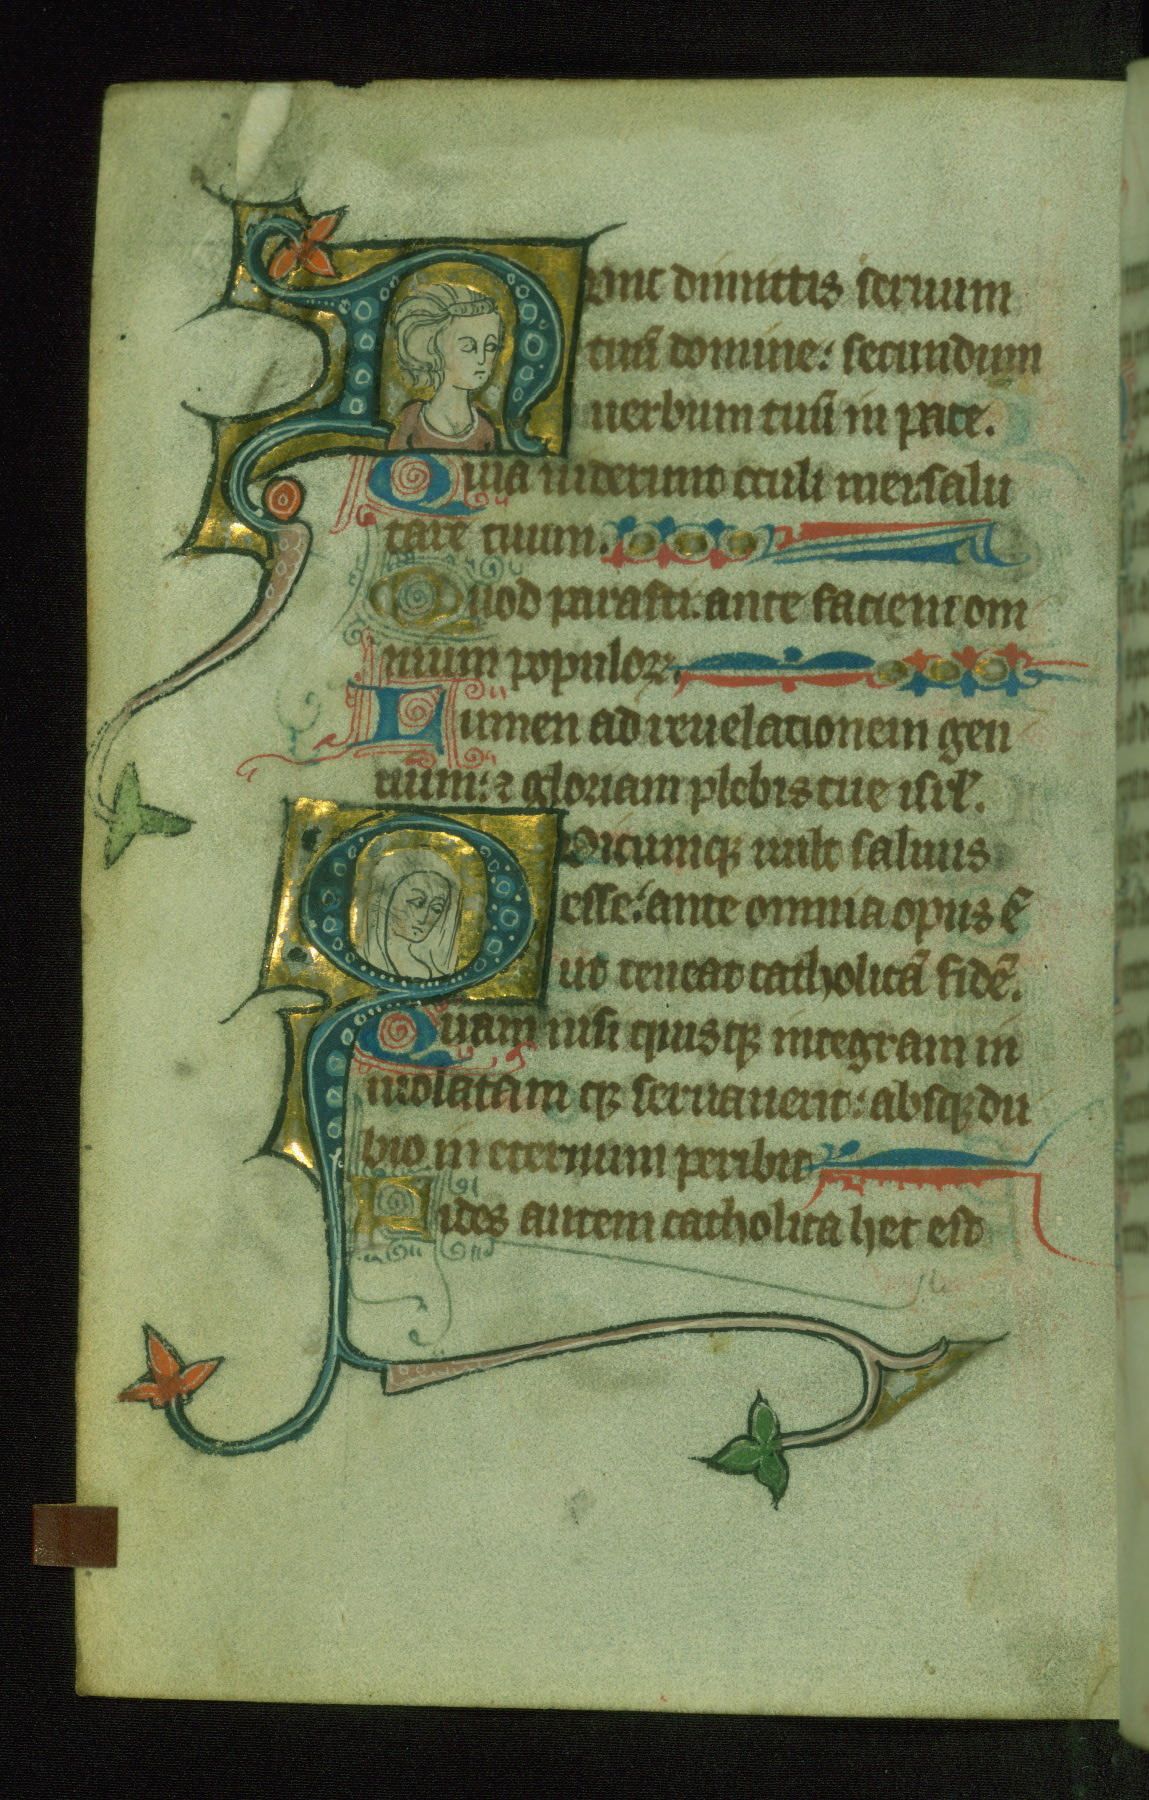 Nunc dimittis seruum
tuū domine: secundum
uerbum tuū in pace.
Quia uiderunt oculi mei salu
tare tuum.
Quod parasti. ante faciem om
nium populoꝝ.
Lumen ad reuelationem gen
tium: ⁊ gloriam plebis tue isrl̄.
Quicumqꝫ uult saluus
esse: ante omnia opus ē
ut teneat catholicā fidē.
Quam nisi quisqꝫ integram in
uiolatam qꝫ seruauerit: absqꝫ du
bio in eternum peribit
Fides autem catholica hec est